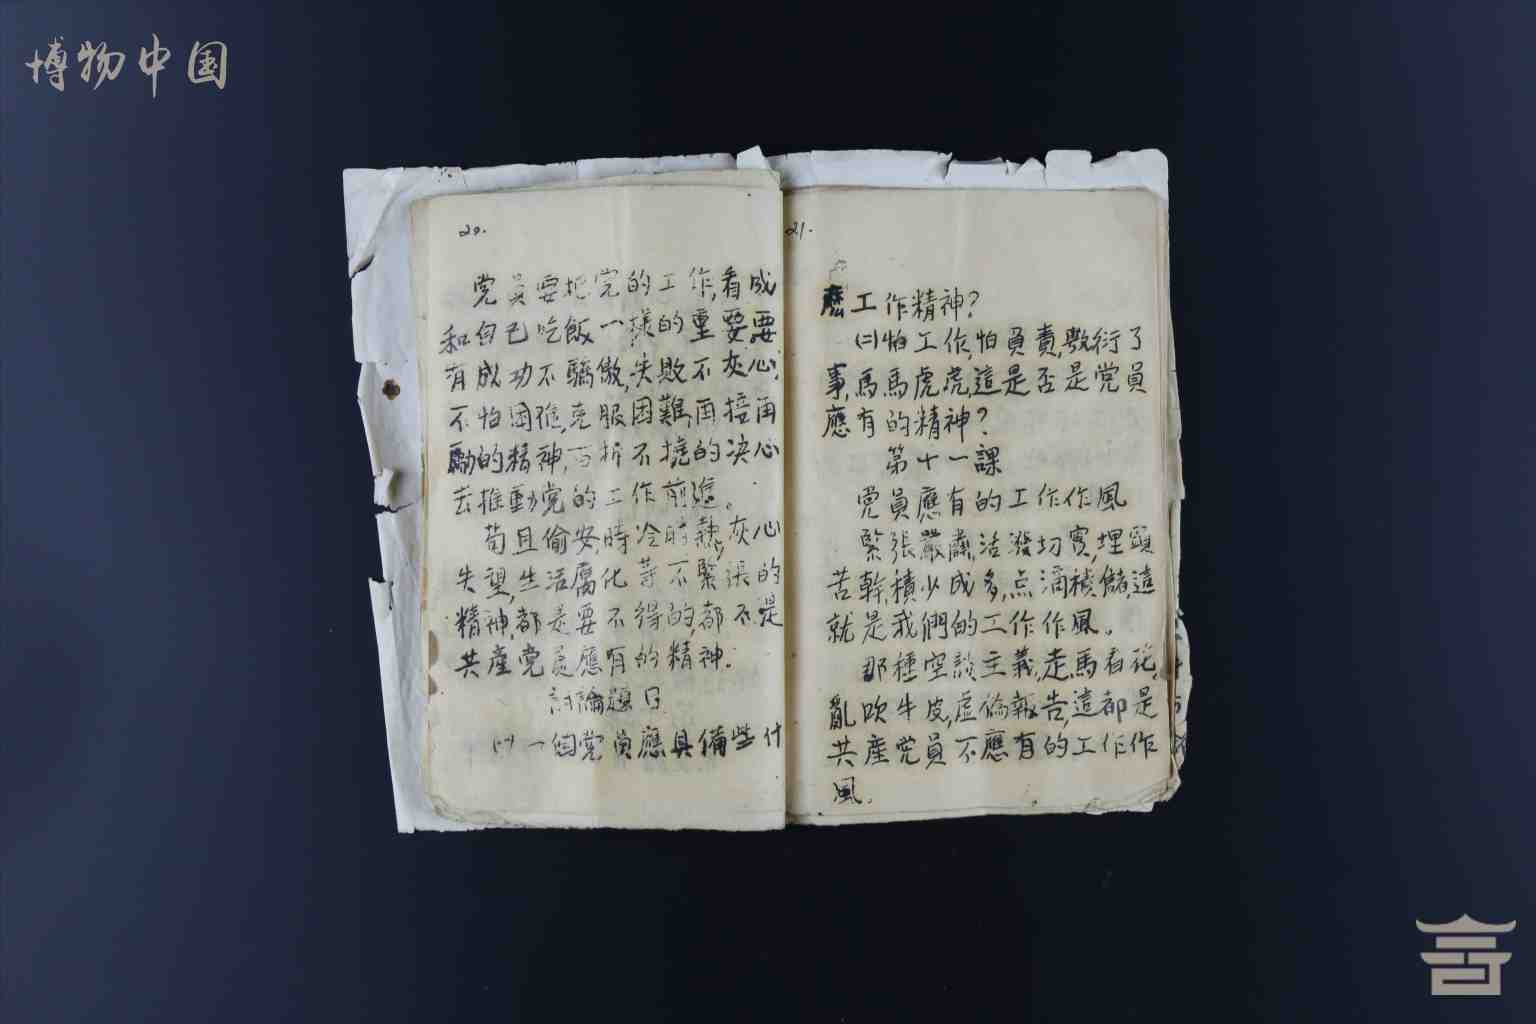 博物中国
20.
党員要把党的工作,看成
和自己吃飯一樣的重要要
有成功不驕傲,失敗不灰心,
不怕困难,克服困難再接再
勵的精神,百折不撓的决心
去推動党的工作前進。
苟且偷安,時冷時熱,灰心
失望,生活腐化等不緊張的
精神,都是要不得的,都不是
共產党員應有的精神.
討論題目
(一)一個党員應具備些什
21.
麽工作精神?
(二)怕工作,怕員責,敷衍了
事,馬馬虎虎,這是否是党員
應有的精神?
第十一課
党員應有的工作作風
緊張嚴肅,活潑切實,埋頭
苦幹,積少成多,点滴積儲,這
就是我們的工作作風。
那種空談主義,走馬看花,
亂吹牛皮,虛偽報告,這都是
共產党員不應有的工作作
風.